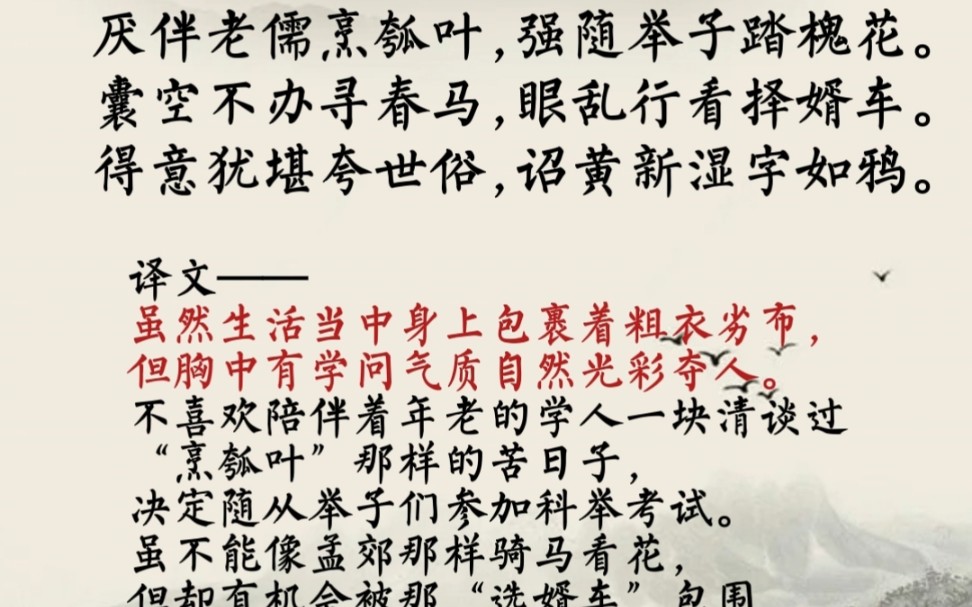 厌伴老儒烹瓠叶,强随举子踏槐花。
囊空不办寻春马,眼乱行看择婿车。
得意犹堪夸世俗,诏黄新湿字如鸦。
译文——
虽然生活当中身上包裹着粗衣劣布,
但胸中有学问气质自然光彩夺人。
不喜欢陪伴着年老的学人一块清谈过
“烹瓠叶”那样的苦日子,
决定随从举子们参加科举考试。
虽不能像孟郊那样骑马看花,
但却有机会被那“选婿车”包围